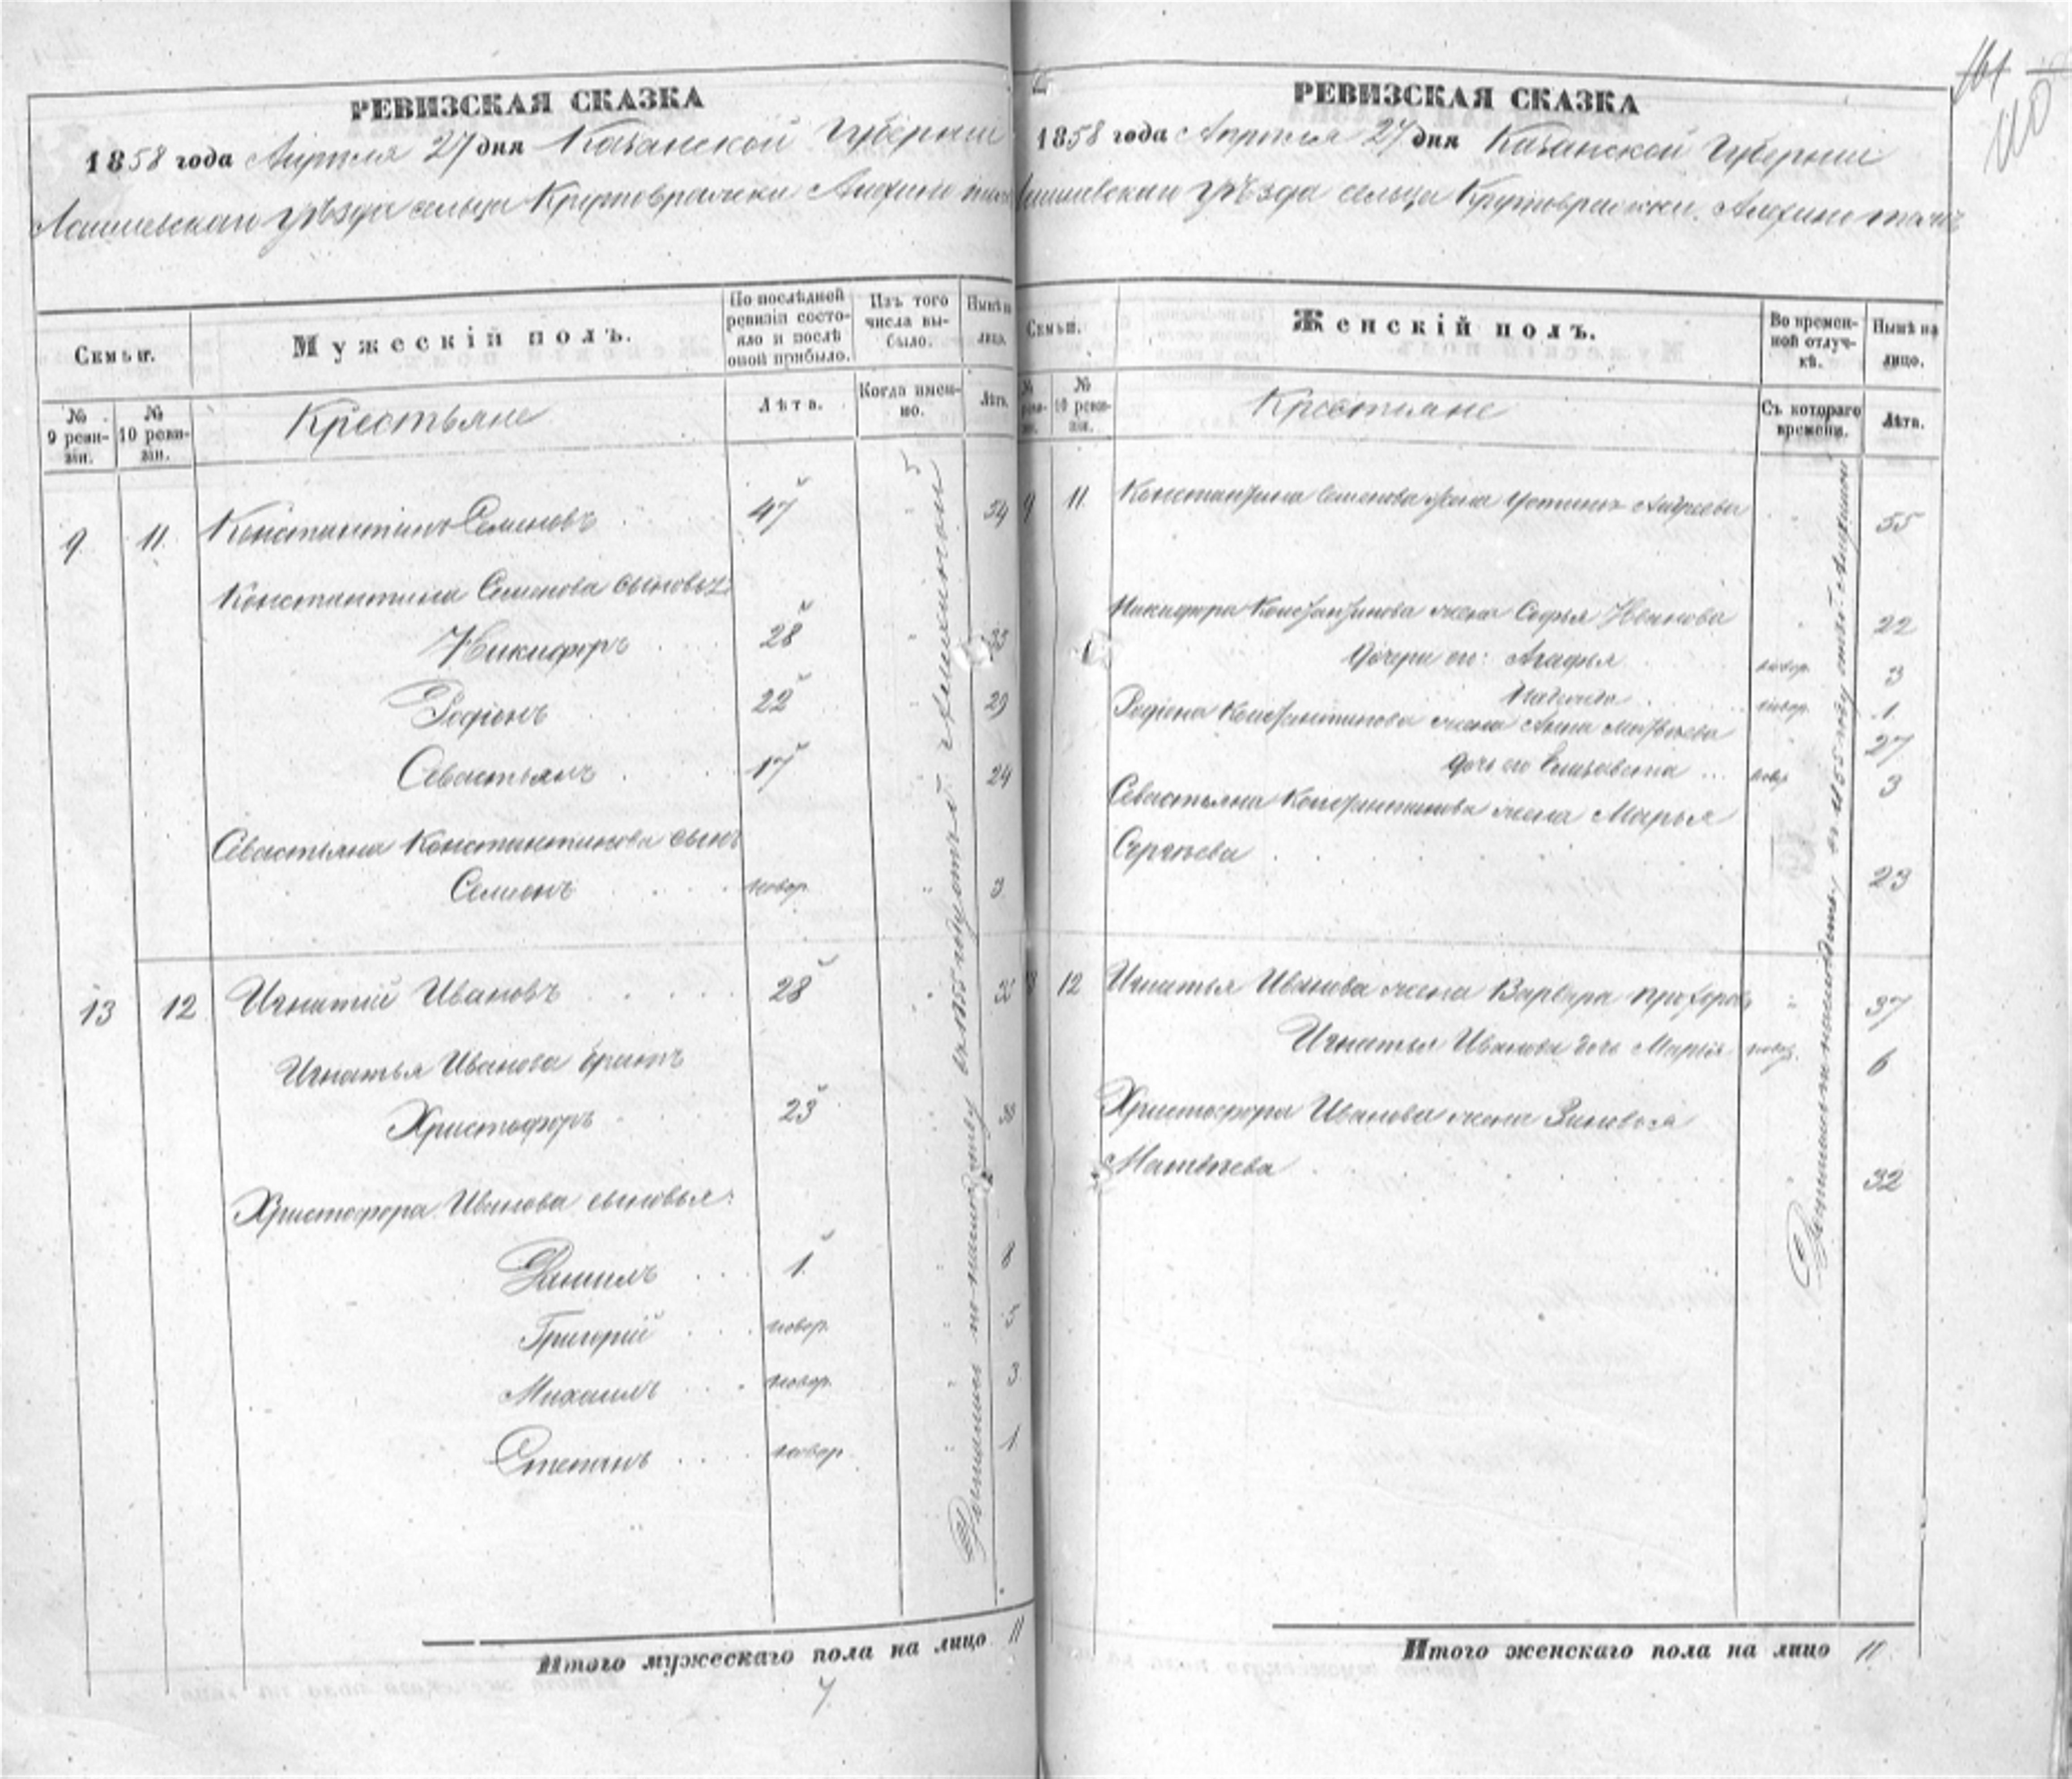 161
110
РЕВИЗСКАЯ СКАЗКА
1858 года Апреля 27 дня Казанской Губернии
Лаишевскаго уѣзда сельца Крутовражки Алехино тожъ
Семьи.
Мужескій полъ.
По послѣдней ревизіи состояло и послѣ оной прибыло.
Изъ того числа выбыло.
Нынѣ на лицо.
№ 9 ревизіи.
№ 10 ревизіи.
Крестьяне
Лѣта.
Когда именно.
Лѣта.
9 11. Константинъ Семеновъ 47 54
Константина Семенова сыновья:
Никифоръ 28 35
Родіонъ 22 29
Севастьянъ 17 24
Севастьяна Константинова сынъ
Семионъ новор. 3
13 12 Игнатій Ивановъ 28 35
Игнатья Иванова братъ
Христофоръ 23 30
Христофора Иванова сыновья:
Данилъ 1. 8
Григорій новор.
Михаилъ новор. 3
Степанъ новор. 1
въ 1855 году отъ
Итого мужескаго пола на лицо 11
РЕВИЗСКАЯ СКАЗКА
1858 года Апреля 27 дня Казанской Губернии
Лаишевскаго уѣзда сельца Крутовражки Алехино тожъ
Семьи.
Женскій полъ.
Во временной отлучкѣ.
Нынѣ на лицо.
№ 9 ревизіи.
№ 10 ревизіи.
Крестьяне
Съ котораго времени.
Лѣта.
9 11. Константина Семенова жена Устинья Андреева 55
Никифора Константинова жена Софья Иванова 22
Дочери ег: Агафья новор. 3
новор. 1.
Родіона Константинова жена Анна Матвѣева 27
дочь его Елизавета новор. 3
Севастьяна Константинова жена Марья
Сергѣева 23
13 12 Игнатья Иванова жена Варвара Прохорова 37
Игнатья Иванова дочь Марья новор. 6
Христофора Иванова жена Зиновья
Матвѣева 32
въ 1855 году отъ
Итого женскаго пола на лицо 11.